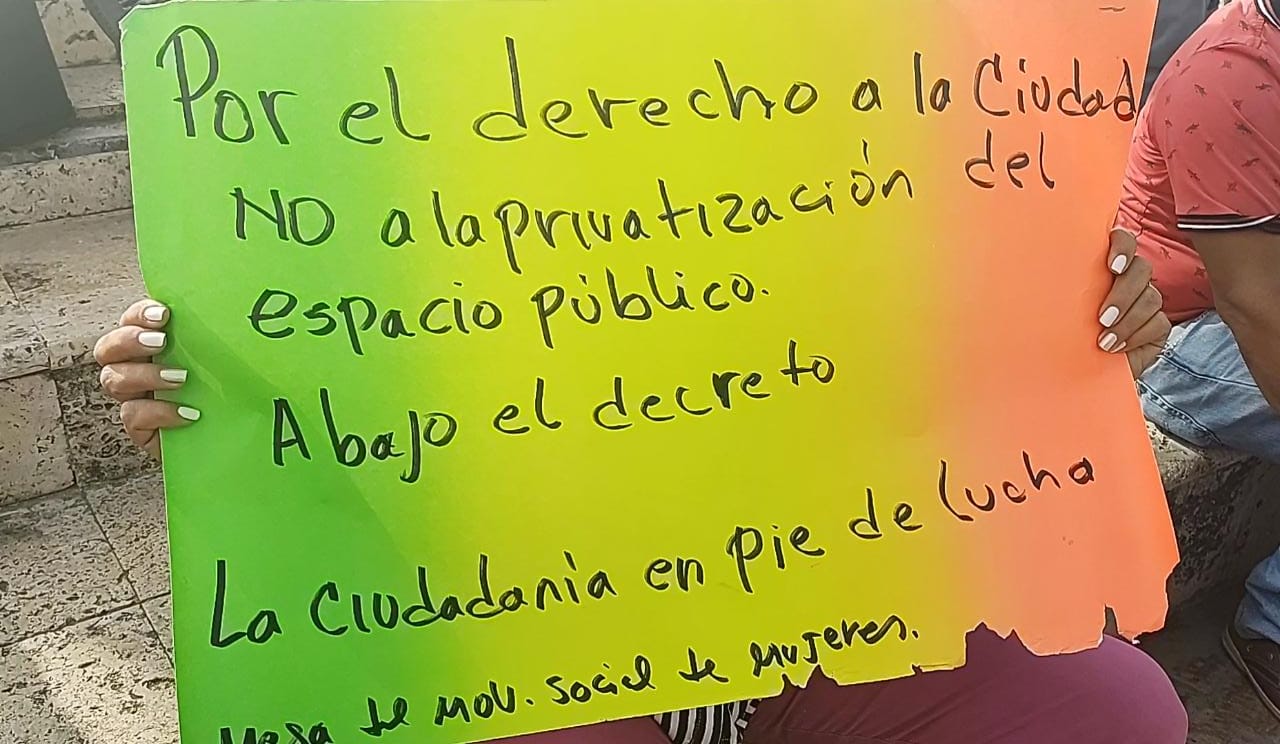 Por el derecho a la Ciudad
NO a la privatización del
espacio público.
Abajo el decreto
La Ciudadanía en pie de lucha
Mesa de mov. social de mujeres.